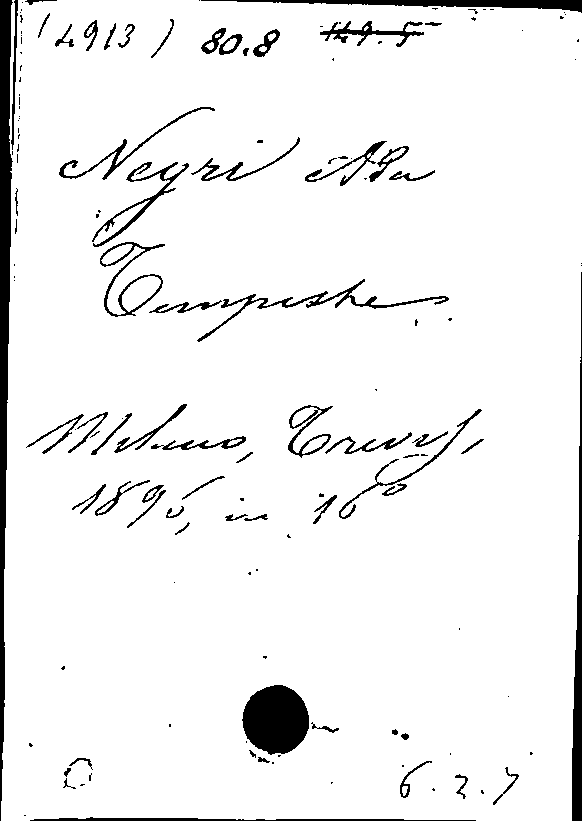 (4913) 80.8 149.5
Negri Ada
Tempeste
Milano, Treves,
1896, in 16°
6.2.7